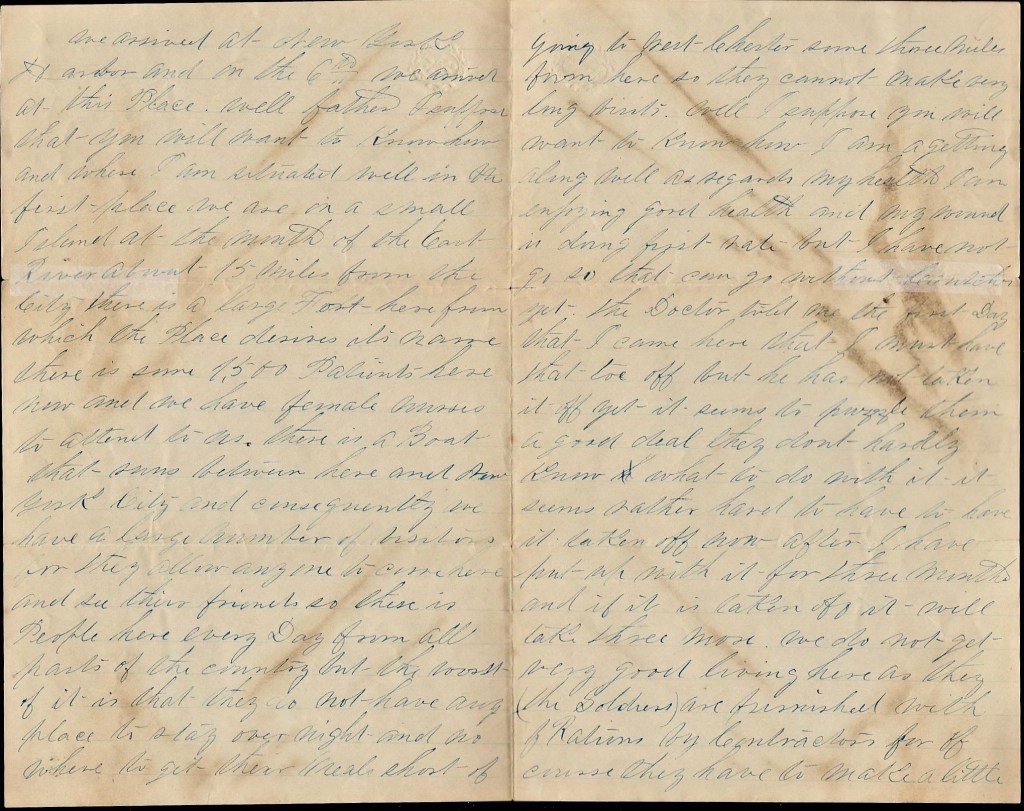 we arrived at New York
Harbor and on the 6th we arrived
at this Place. well father I suppose
that you will want to Know how
and where I am situated well in the
first place we are on a small
Island at the mouth of the East
River about 15 miles from the
City there is a large Fort here from
which the Place derives its name
there is some 1,500 Patients here
now and we have female nurses
to attend to us. there is a Boat
that runs between here and New
York City and consequently we
have a large number of visitors
they allow anyone to come here
and see their friends so there is
People here every Day from all
parts of the country but the worst
of it is that they do not have any
place to stay over night and no
where to get their meals short of
going to west Chester some three miles
from here so they cannot make very
long visits. Well I suppose you will
want to Know how I am a getting
along well as regards my health I am
enjoying good health and my wound
is doing first rate but I have not
go so that can go without crutches
yet. the Doctor told me the first Day
that I came here that I must have
that toe off but he has not taken
it off yet it seems to puzzle them
a good deal they dont hardly
Know what to do with it it
seems rather hard to have to have
it taken off now after I have
put up with it for three months
and if it is taken off it will
take three more. we do not get
very good living here as they
(the Soldiers) are furnished with
Rations by Contractors for of
course they have to make a little